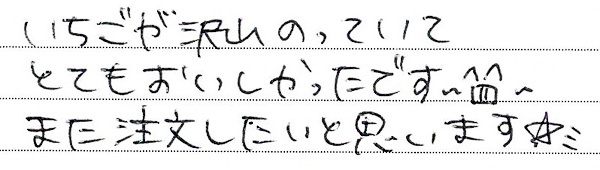 いちごが沢山のっていて
とてもおいしかったです~^^~
また注文したいと思います☆ミ